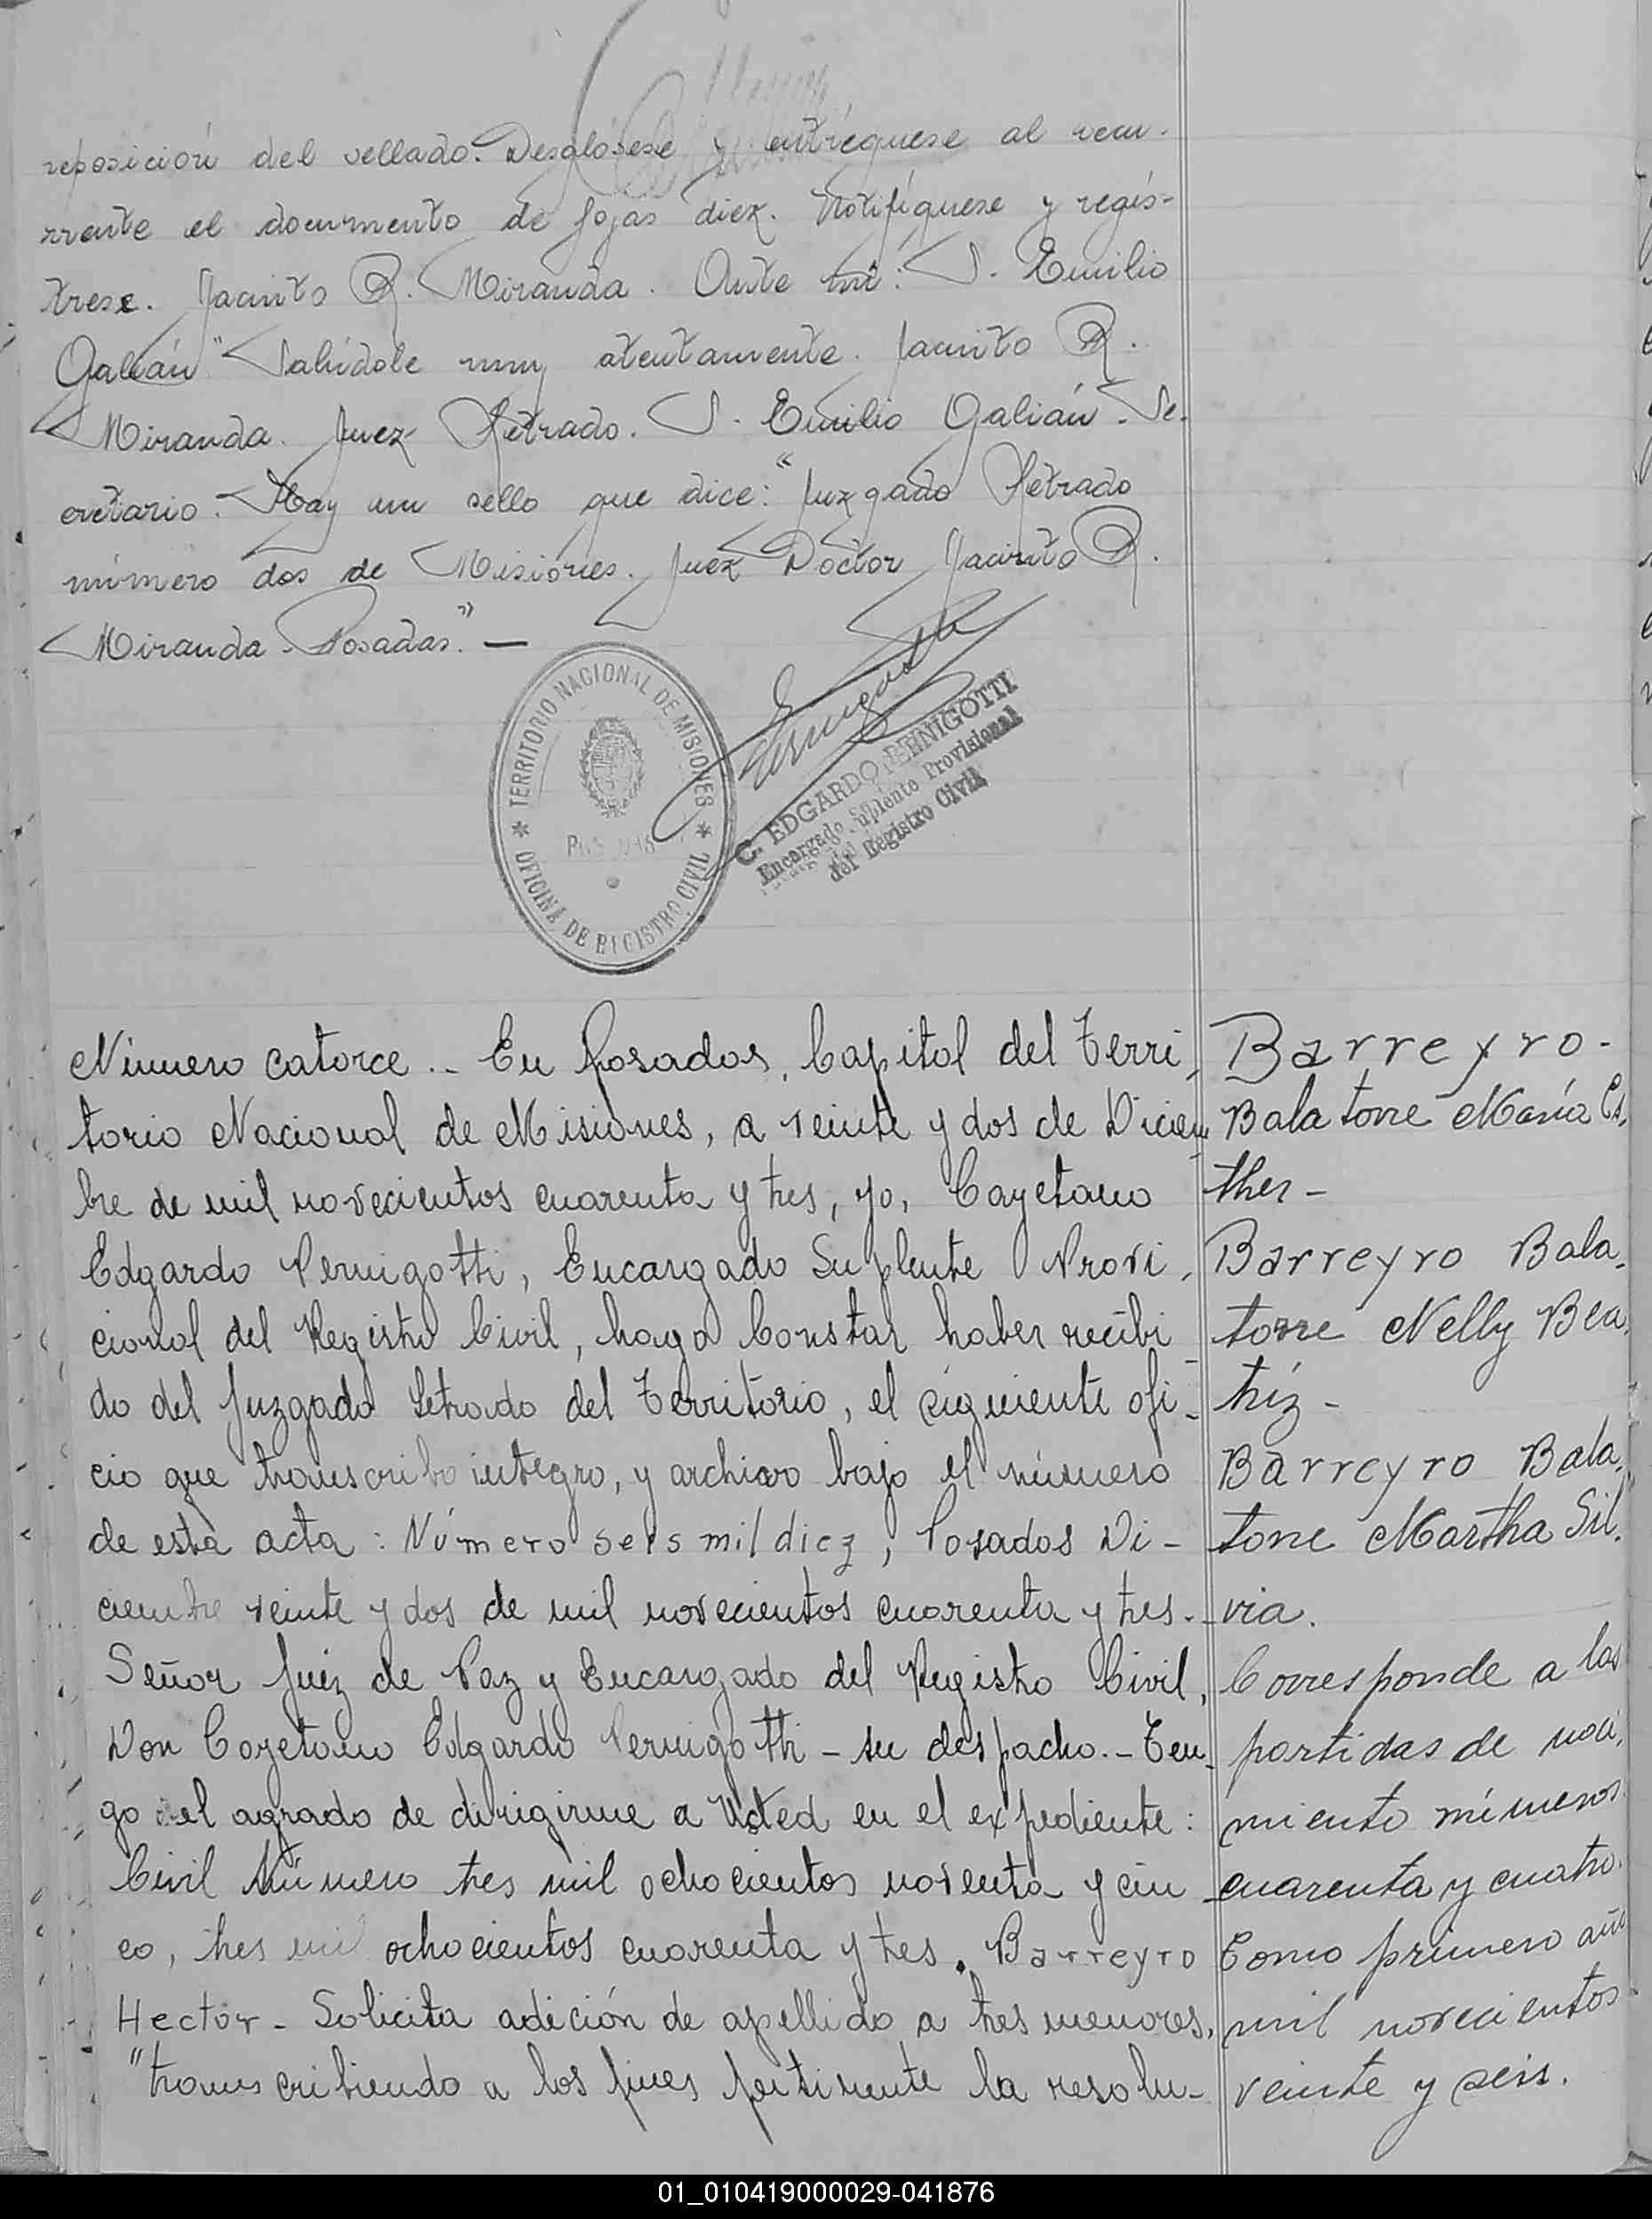 reposición del sellado. Desglósese y entréguese al recu-
rrente el documento de fojas diez. Notifíquese y regís-
trese. Jacinto R. Miranda. Ante mí: S. Emilio
Galián" Salúdole muy atentamente. Jacinto R.
Miranda. Juez Letrado. S. Emilio Galián. Se-
cretario. Hay un sello que dice: "Juzgado Letrado
número dos de Misiones. Juez Doctor Jacinto R.
Miranda - Posadas." —
TERRITORIO NACIONAL DE MISIONES
OFICINA DE REGISTRO CIVIL
C. EDGARDO PENIGOTTI
Encargado Suplente Provisional
del Registro Civil
Número catorce .- En Posadas, Capital del Terri-
torio Nacional de Misiones, a veinte y dos de Diciem-
bre de mil novecientos cuarenta y tres, yo, Cayetano
Edgardo Pernigotti, Encargado Suplente Provi-
cional del Registro Civil, hago Constar haber recibi-
do del Juzgado Letrado del Territorio, el siguiente ofi-
cio que transcribo integro, y archivo bajo el número
de esta acta: Número seis mil diez, Posadas Di-
ciembre veinte y dos de mil novecientos cuarenta y tres.-
Señor Juez de Paz y Encargado del Registro Civil,
Don Cayetano Edgardo Pernigotti - su despacho.- Ten-
go el agrado de dirigirme a Usted en el expediente:
Civil Número tres mil ochocientos noventa y cin
co, tres mil ochocientos cuarenta y tres. Barreyro
Hector - Solicita adición de apellido a tres menores,
"transcribiendo a los fines pertinente la resolu-
Barreyro-
Balatorre María Es-
ther -
Barreyro Bala-
torre Nelly Bea-
tríz -
Barreyro Bala-
torre Martha Sil-
via.
Corresponde a las
partidas de naci-
miento números
cuarenta y cuatro.
Tomo primero año
mil novecientos
veinte y seis.
01_010419000029-041876